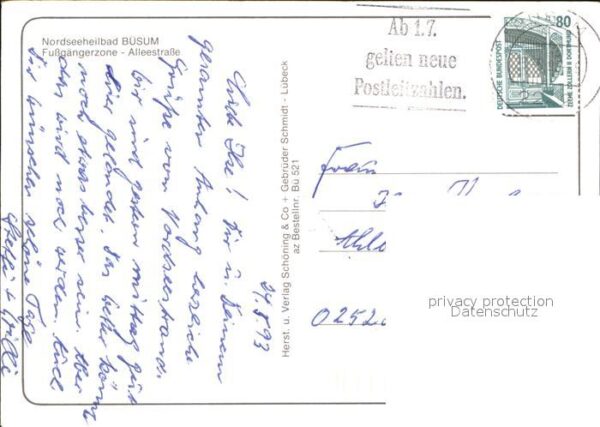 Nordseeheilbad BÜSUM
Fußgängerzone - Alleestraße
24.5.93
Liebe Ilse! Dir u. Deinem
gesamten Anhang herzliche
Grüße vom Nordseestrand.
Wir sind gestern mittag gut
hier gelandet. Das Wetter könnte
noch etwas besser sein. Aber
das wird noch werden. Euch
wünschen schöne Tage
Steffi + Willi
Herst. u. Verlag Schöning & Co + Gebrüder Schmidt - Lübeck
az Bestellnr. Bü 521
Ab 1.7.
gelten neue
Postleitzahlen.
80
DEUTSCHE BUNDESPOST
ZECHE ZOLLERN II DORTMUND
Frau
Ahle
O252
privacy protection
Datenschutz